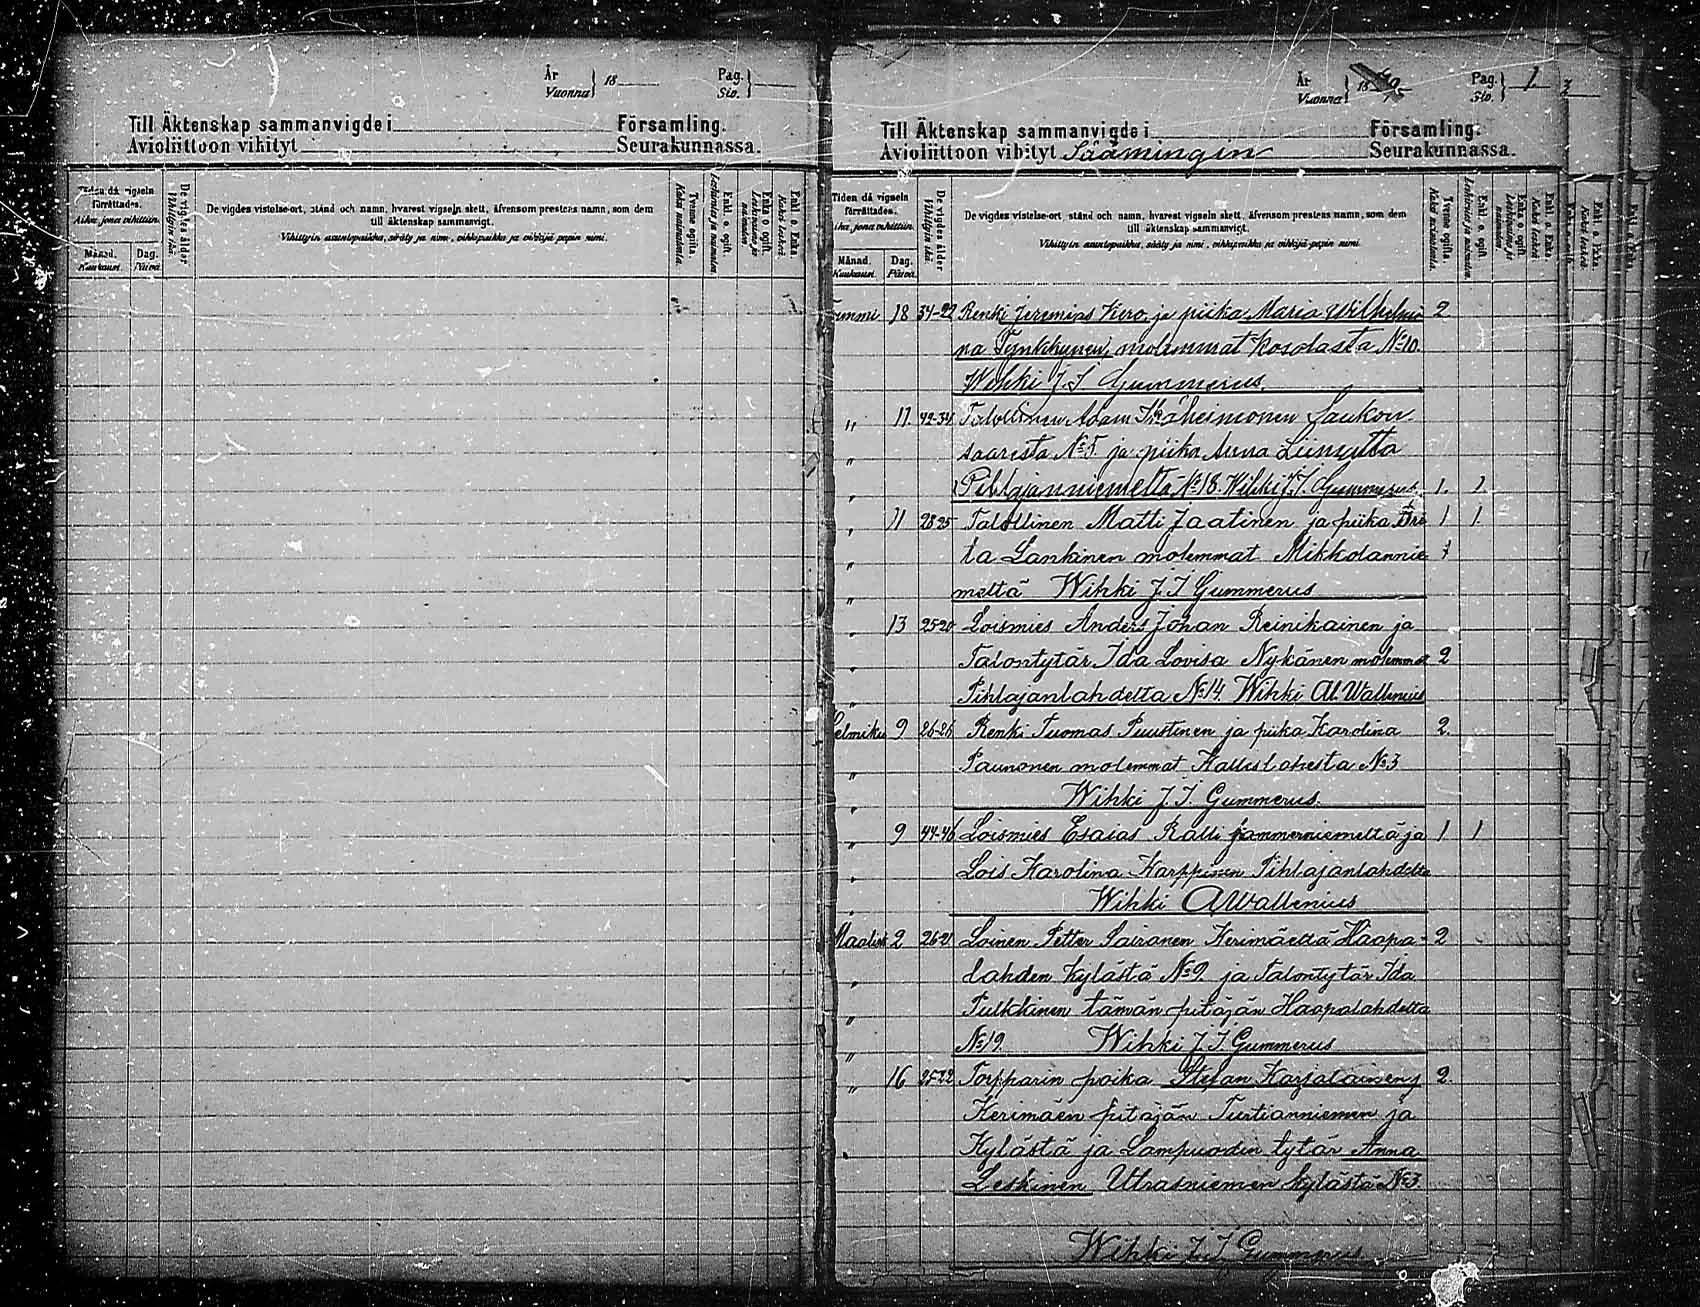 År
Vuonna } 18
Pag.
Siv. }
Till Äktenskap sammanvigde i Församling.
Avioliittoon vihityt Seurakunnassa.
Tiden då vigseln förrättades.
Aika, jona vihittiin.
Månad.
Kuukausi.
Dag.
Päivä.
De vigdes ålder
Vihittyin ikä.
De vigdes vistelse-ort, stånd och namn, hvarest vigseln skett, äfvensom prestens namn, som dem
till äktenskap sammanvigt.
Vihittyin asuntopaikka, sääty ja nimi, vihkipaikka ja vihkijä-papin nimi.
Tvenne ogifta.
Kaksi naimatonta.
Enkl. o. ogift.
Leskimies ja naimaton.
Enka o. ogift.
Leskivaimo ja naimaton.
Enkl. o. Enka
Kaksi leskeä
År
Vuonna } 18
Pag.
Siv. } 1.
Till Äktenskap sammanvigde i Församling.
Avioliittoon vihityt Säämingin Seurakunnassa.
Tiden då vigseln förrättades.
Aika, jona vihittiin.
Månad.
Kuukausi.
Dag.
Päivä.
De vigdes ålder
Vihittyin ikä.
De vigdes vistelse-ort, stånd och namn, hvarest vigseln skett, äfvensom prestens namn, som dem
till äktenskap sammanvigt.
Vihittyin asuntopaikka, sääty ja nimi, vihkipaikka ja vihkijä-papin nimi.
Tvenne ogifta.
Kaksi naimatonta.
Enkl. o. ogift.
Leskimies ja naimaton.
Enka o. ogift.
Leskivaimo ja naimaton.
Enkl. o. Enka
Kaksi leskeä
18 34-22 Renki Jeremias Kiero ja piika Maria Wilhelmi 2
na Tynkkynen, molemmat Kosolasta No 10.
Wihki J. I. Gummerus.
" 11. 42-34 Talollinen Adam Ihaheimonen Laukon
" saaresta No 5 ja piika Anna Liimatta
" Pihlajanniemeltä No 18. Wihki J. I. Gummerus 1. 1
" 11 28 25 Talollinen Matti Jaatinen ja piika Bri 1 1.
" ta Lankinen molemmat Mikkolannie
" meltä Wihki J. I Gummerus
" 13 25-20 Loismies Anders Johan Reinikainen ja
" Talontytär Ida Lovisa Nykänen molemmat 2
" Pihlajanlahdelta No 14 Wihki A. Wallenius
Helmiku 9 26-26 Renki Tuomas Puustinen ja piika Karolina 2.
" Paunonen molemmat Kallislahesta No 3
" Wihki J. I. Gummerus.
" 9 44-46 Loismies Esaias Ralli Pammerniemeltä ja 1 1
" Lois Karolina Karppinen Pihlajanlahdelta
" Wihki A Wallenius
Maalisk 2 26-21 Loinen Petter Sairanen Kerimäeltä Haapa- 2
" lahden kylästä No 9. ja Talontytär Ida
" Pulkkinen tämän pitäjän Haapalahdelta
" No 19. Wihki J. I Gummerus
" 16 25-22 Torpparin poika Stefan Karjalainen 2.
Kerimäen pitäjän Turtianniemen ja
Kylästä ja Lampuodin tytär Anna
Leskinen Utrasniemen kylästä No 3.
Wihki J. I Gummerus